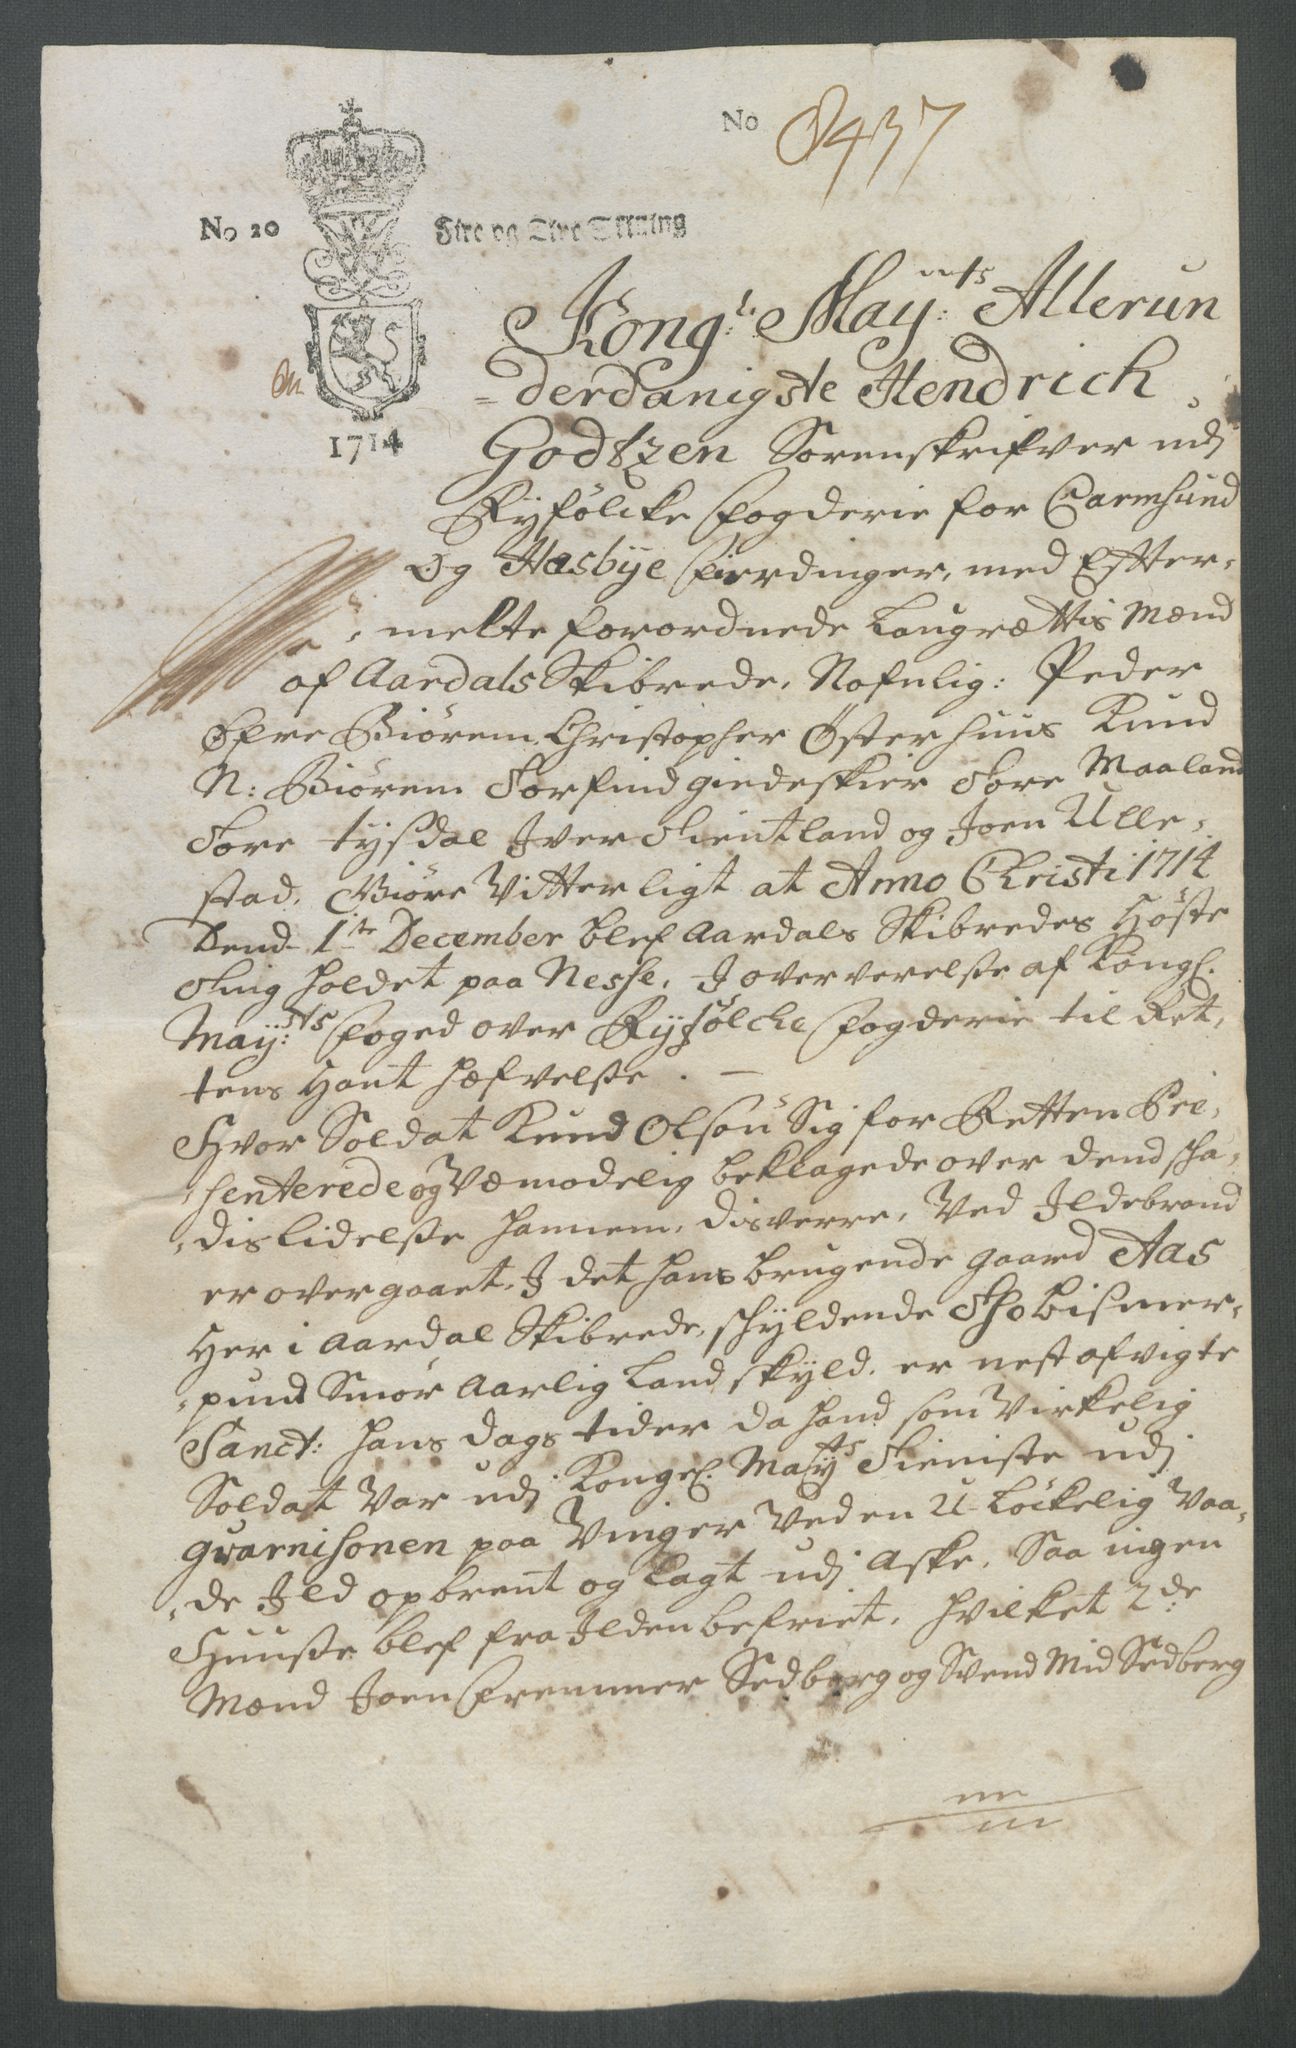 No 8437
No 20 Fire og Tive Skilling
1714
Kongl: Maÿ:ts Allerun
=derdanigste Hendrich
Godtzen Sorenskrifver udj
Rÿfölcke fogderie for Carmsund
Og Hesbÿe fierdinger, med Efter-
-melte forordnede Laugrættis Mænd
af Aardals Skibrede, Nafnlig: Peder
Öfre Biörem, Christopher Österhuus Knud
N: Biörem Torfind Giedeskier Tore Maaland
Tore Tÿsdal Iver Tientland og Joen Ulle-
stad, Giöre Vitterligt at Anno Christi 1714
Dend 1ste December blef Aardals Skibredes Höste
Ting holdet paa Nesse, I oververelse af Kongl.
Maÿ:ts foged over Rÿfölche fogderie til Ret-
tens Hant hæfvelse. —
Hvor Soldat Knud Olson Sig for Retten Pre-
-senterede og Væmodelig beklagede over dend scha-
-dislidelse hannem, disverre, Ved Ildebrand
er overgaaet, I det hans brugende gaard Aas
Her i Aardal Skibrede, schÿldende Tho bismer-
-pund Smör Aarlig Landskÿld, er nest afvigte
Sanct: Hans dags tider da hand som Virkelig
Soldat Var udj Kongel. Maÿts Tieniste udj
Gvarnisonen paa Vinger Ved en U-Löckelig Vaa-
-de Ild opbrent og Lagt udj Aske, Saa ingen
Huuse blef fra Ilden befriet, hvilket 2de
Mænd Joen fremmer Sedberg og Svend Mid Sedberg